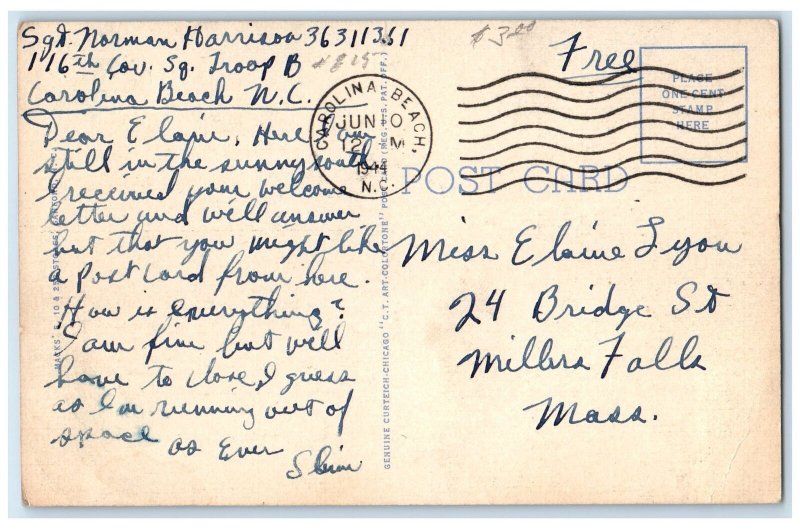 Sgt. Norman Harrison 36311361
116th Cav. Sq. Troop B
Carolina Beach N.C.
$3.00
Free
PLACE
ONE CENT
STAMP
HERE
CAROLINA BEACH,
JUN
12 M
1944
N.C.
POST CARD
Dear Elaine, Here I am
still in the sunny south
I received your welcome
letter and will answer
but that you might like
a post card from here.
How is everything?
I am fine but will
have to close, I guess
as I'm running out of
space
as Ever
Slim
Miss Elaine Lyon
24 Bridge St
Millers Falls
Mass.
GENUINE CURTEICH-CHICAGO "C.T. ART-COLORTONE" POST CARD (REG. U.S. PAT. OFF.)